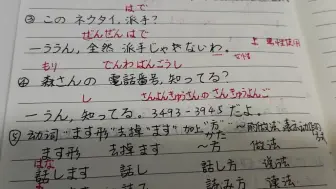 はで
③ この ネクタイ, 派手?
ぜんぜん はで
ーううん, 全然 派手じゃないわ.
もり でんわ ばんごう し
④ 森さんの 電話番号, 知ってる?
し さんよんきゅうさんの さんきゅうよんご
ーうん, 知ってる. 3493-3945 だよ.
⑤ 动词"ます形"去掉"ます"加上"方"
ます形 去掉ます ～方 做法
はな
話します 話し 話し方 说法
読み方 读法